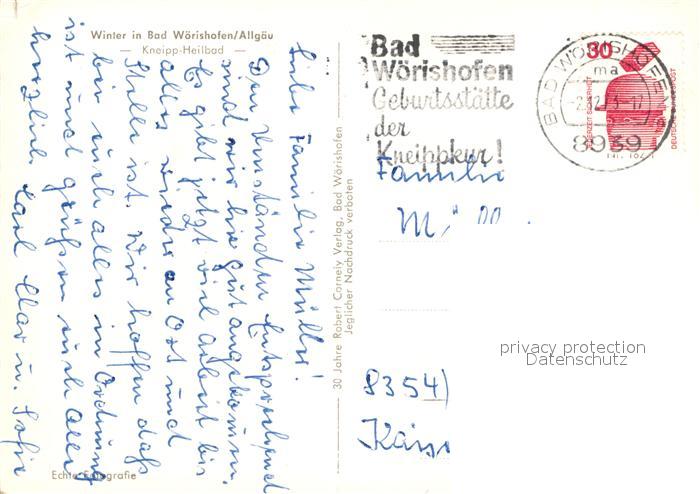 Winter in Bad Wörishofen/Allgäu
— Kneipp-Heilbad —
Liebe Familie Müller!
Den Umständen Entsprechend
sind wir hie gut angekomm.
Es gibt jetzt viel arbeit bis
alles wieder an Ort und
Stelle ist. Wir hoffen daß
bei euch alles in Ordnung
ist und grüßen euch alle
herzlich
Echte Fotografie
30 Jahre Robert Cornely Verlag, Bad Wörishofen
Jeglicher Nachdruck verboten
Bad
Wörishofen
Geburtsstätte
der
Kneippkur!
BAD WÖRISHOFEN
ma
8939
30
JEDERZEIT SICHERHEIT
DEUTSCHE BUNDESPOST
Familie
8354)
privacy protection
Datenschutz